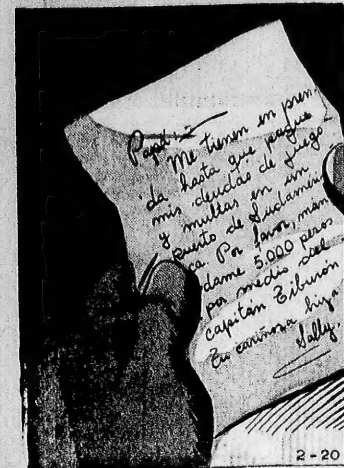 Papá:
Me tienen en pren-
da hasta que pague
mis deudas de juego
y multas en un
puerto de Sudaméri-
ca. Por favor, mán-
dame 5.000 pesos
por medio del
capitán Tiburón
Tu cariñosa hija
Sally.
2-20